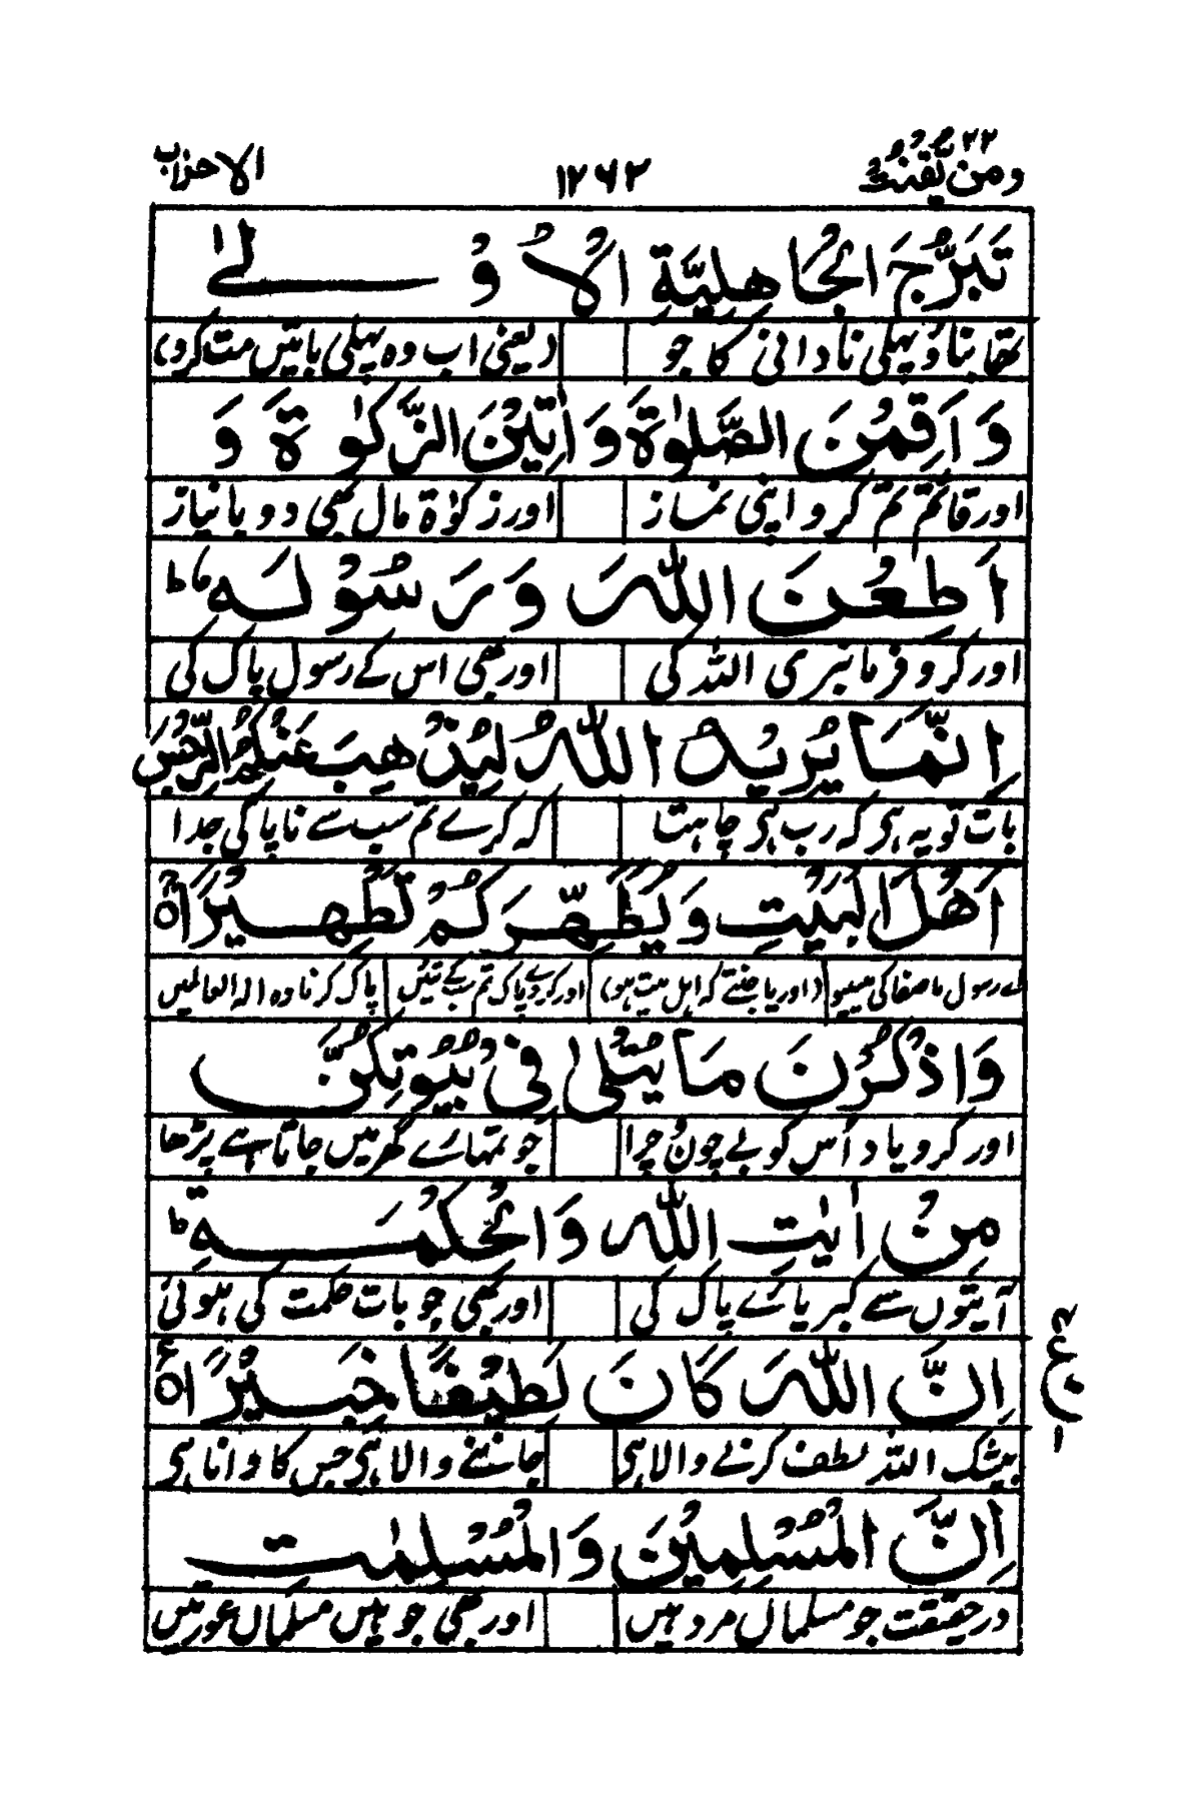 ومن یقنت ۲۲
۱۲۶۲
الاحزاب
تَبَرُّجَ الْجَاهِلِيَّةِ الْاُوْلٰى
تھا بناؤ پہلی نادانی کا جو (یعنی اب وہ پہلی باتیں مت کرو)
وَاَقِمْنَ الصَّلٰوةَ وَاٰتِيْنَ الزَّكٰوةَ وَ
اور قائم تم کرو اپنی نماز اور زکوٰۃ مال بھی دو بانیاز
اَطِعْنَ اللّٰهَ وَرَسُوْلَهٗ ؕ
اور کرو فرمانبری اللہ کی اور بھی اس کے رسول پاک کی
اِنَّمَا يُرِيْدُ اللّٰهُ لِيُذْهِبَ عَنْكُمُ الرِّجْسَ
بات تو یہ ہی کہ رب ہی چاہتا کہ کرے تم سب سے ناپاکی جدا
اَهْلَ الْبَيْتِ وَيُطَهِّرَكُمْ تَطْهِيْرًا ۝
اے رسول باصفا کی بیبیو (اور یا جتنے کہ اہل بیت ہو) اور کردے پاک تم سب کے تئیں پاک کرنا وہ الہ العالمیں
وَاذْكُرْنَ مَا يُتْلٰى فِيْ بُيُوْتِكُنَّ
اور کرو یاد اُس کو بے چون و چرا جو تمہارے گھر میں جاتا ہے پڑھا
مِنْ اٰيٰتِ اللّٰهِ وَالْحِكْمَةِ ؕ
آیتوں سے کبریائے پاک کی اور بھی جو بات حکمت کی ہوئی
اِنَّ اللّٰهَ كَانَ لَطِيْفًا خَبِيْرًا ۝
بیشک اللہ لطف کرنے والا ہی جاننے والا ہی جس کا دانا ہی
ع
۱
اِنَّ الْمُسْلِمِيْنَ وَالْمُسْلِمٰتِ
درحقیقت جو مسلماں مرد ہیں اور بھی جو ہیں مسلماں عورتیں